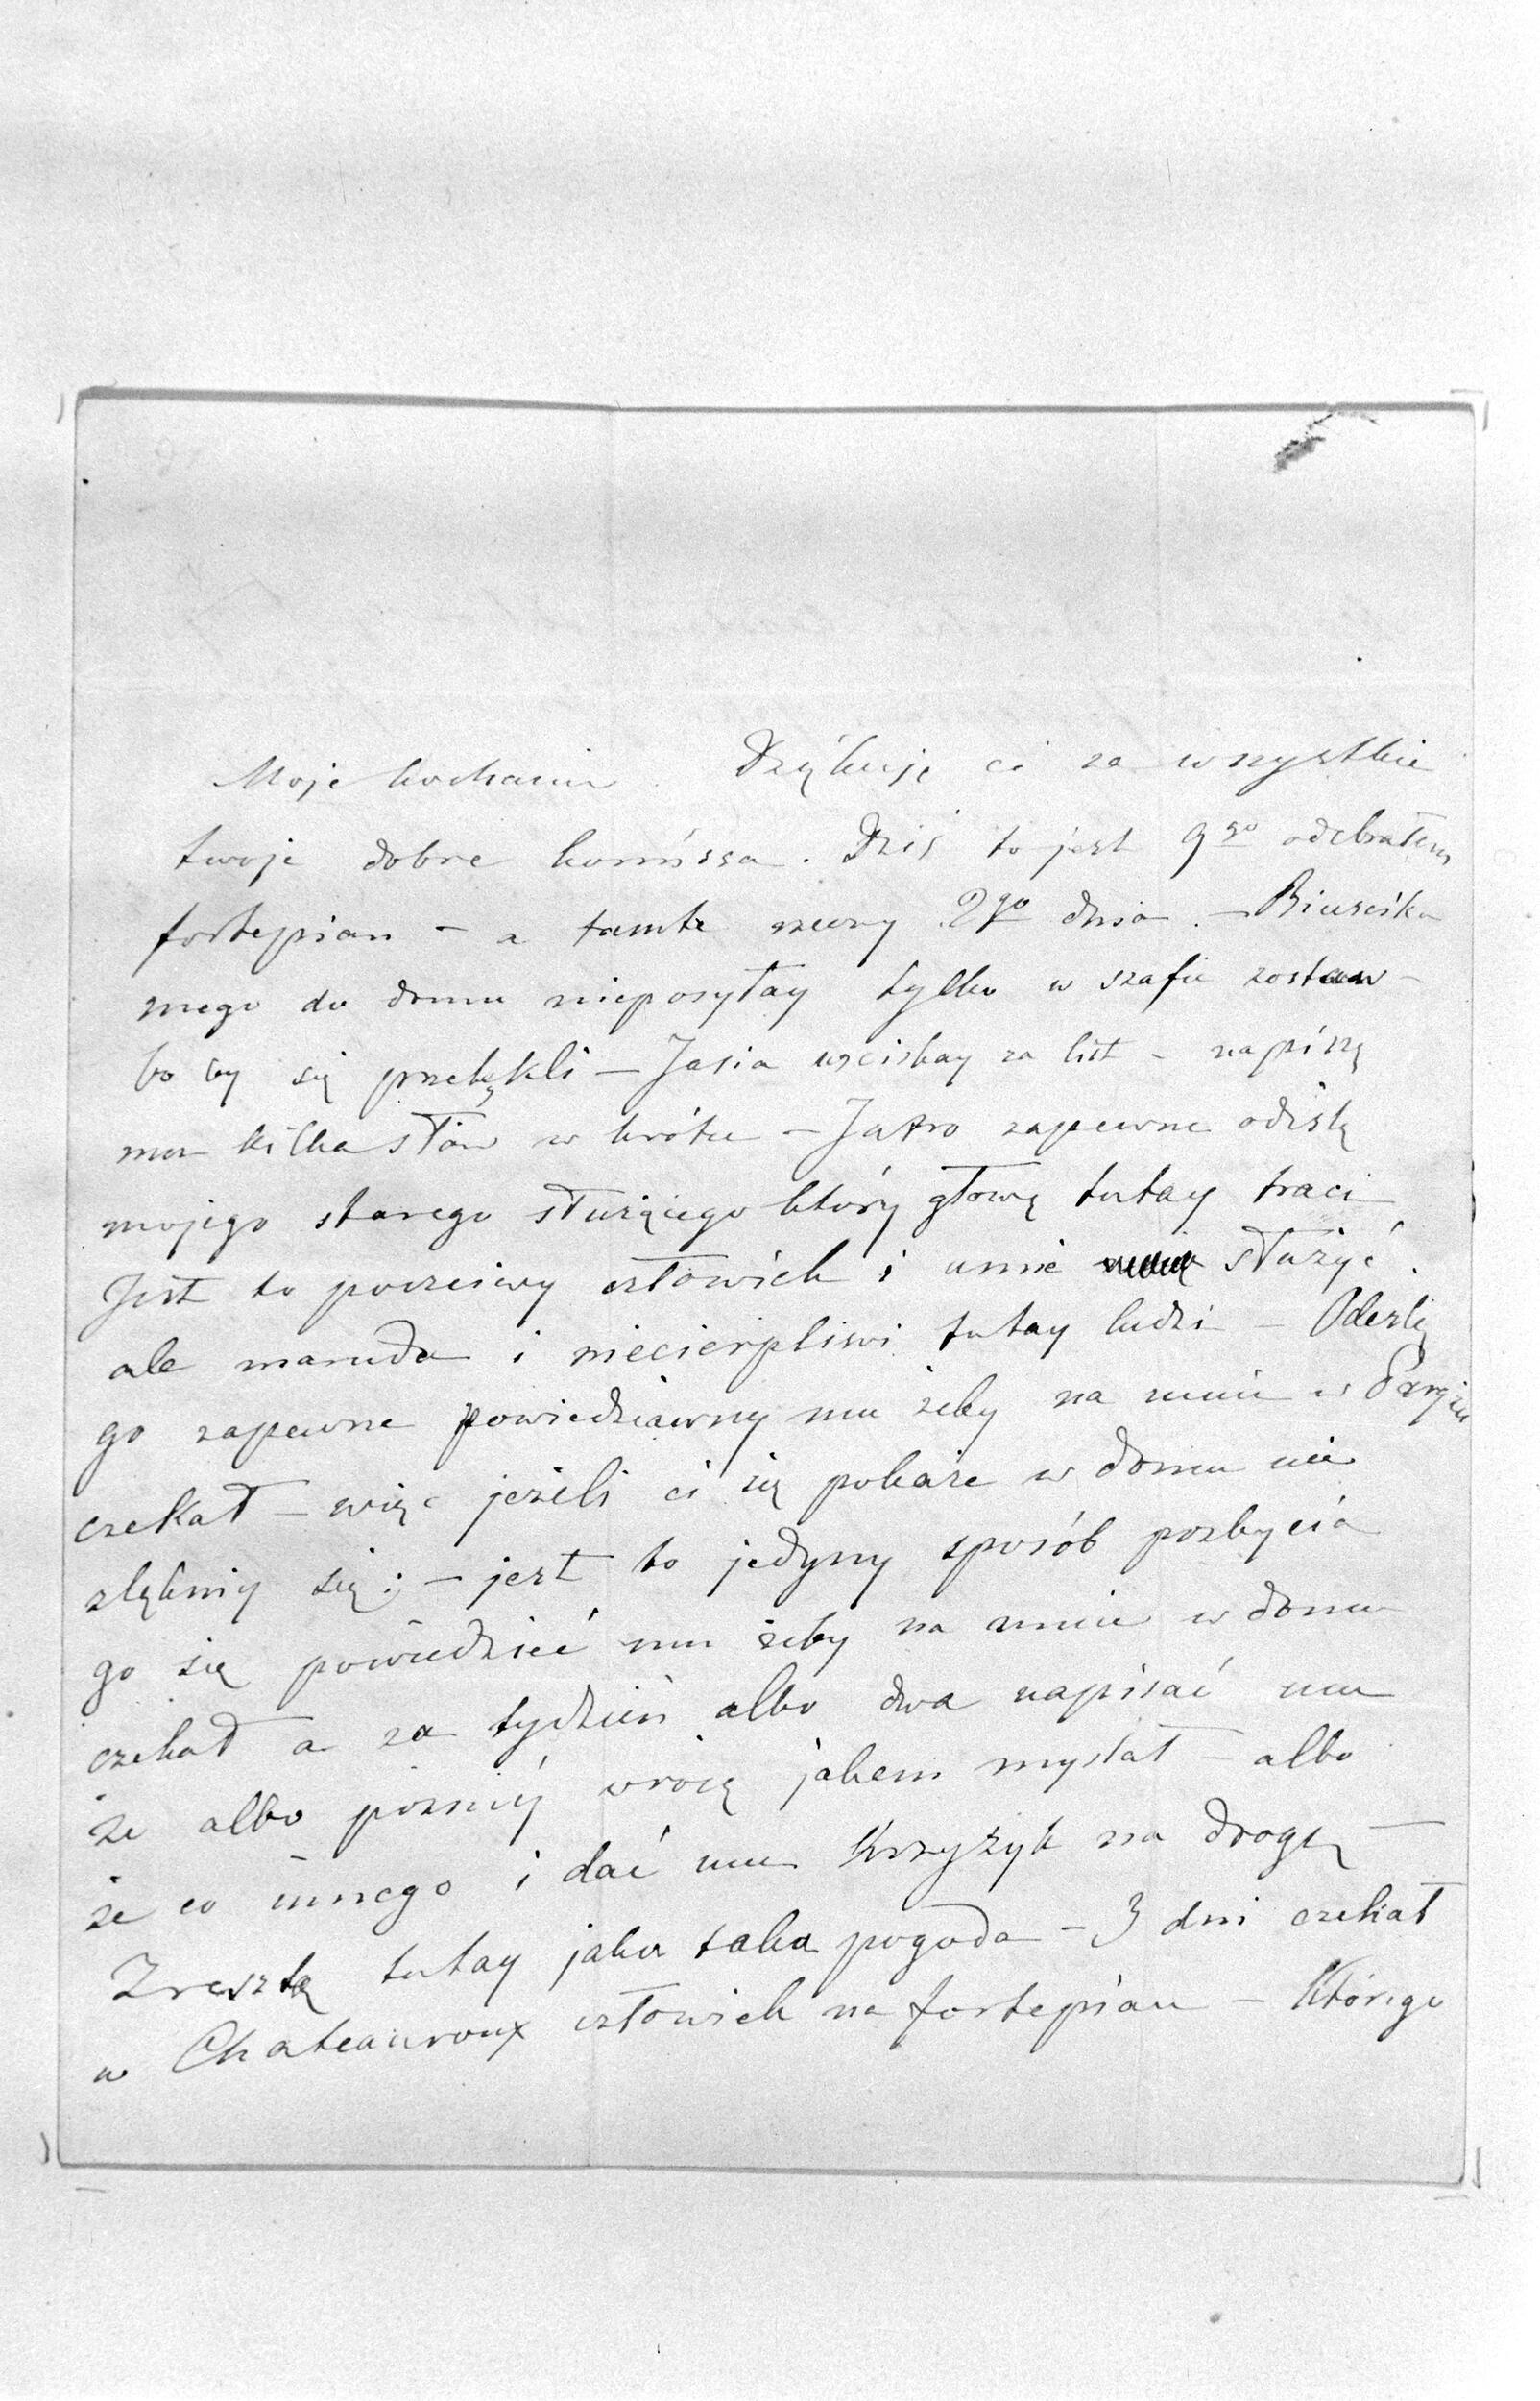 Moje kochanie. Dziękuję ci za wszystkie
twoje dobre komissa. Dziś to jest 9go odebrałem
fortepian – a tamte rzeczy 2go dnia. – Biuścika
mego do domu nieposyłay tylko w szafie zostaw –
bo by się przelękli – Jasia uściskay za list – napiszę
mu kilka słów w krótce – Jutro zapewne odiślę
mojego starego służącego który głowę tutay traci
Jest to poczciwy człowiek i umie służyć.
ale maruda i niecierpliwi tutay ludzi – Odeszlę
go zapewne powiedziawszy mu żeby na mnie w Paryżu
czekał – więc jeżeli ci się pokaże w domu nie
zlęknij się; – jest to jedyny sposób pozbycia
go się powiedzieć mu żeby na mnie w domu
czekał a za tydzień albo dwa napisać mu
że albo pozniéj wrócę jakem myslał – albo
że co innego i dać mu krzyżyk na drogę –
Zresztą tutay jaka taka pogoda – 3 dni czekał
w Chateauroux człowiek na fortepian – którego